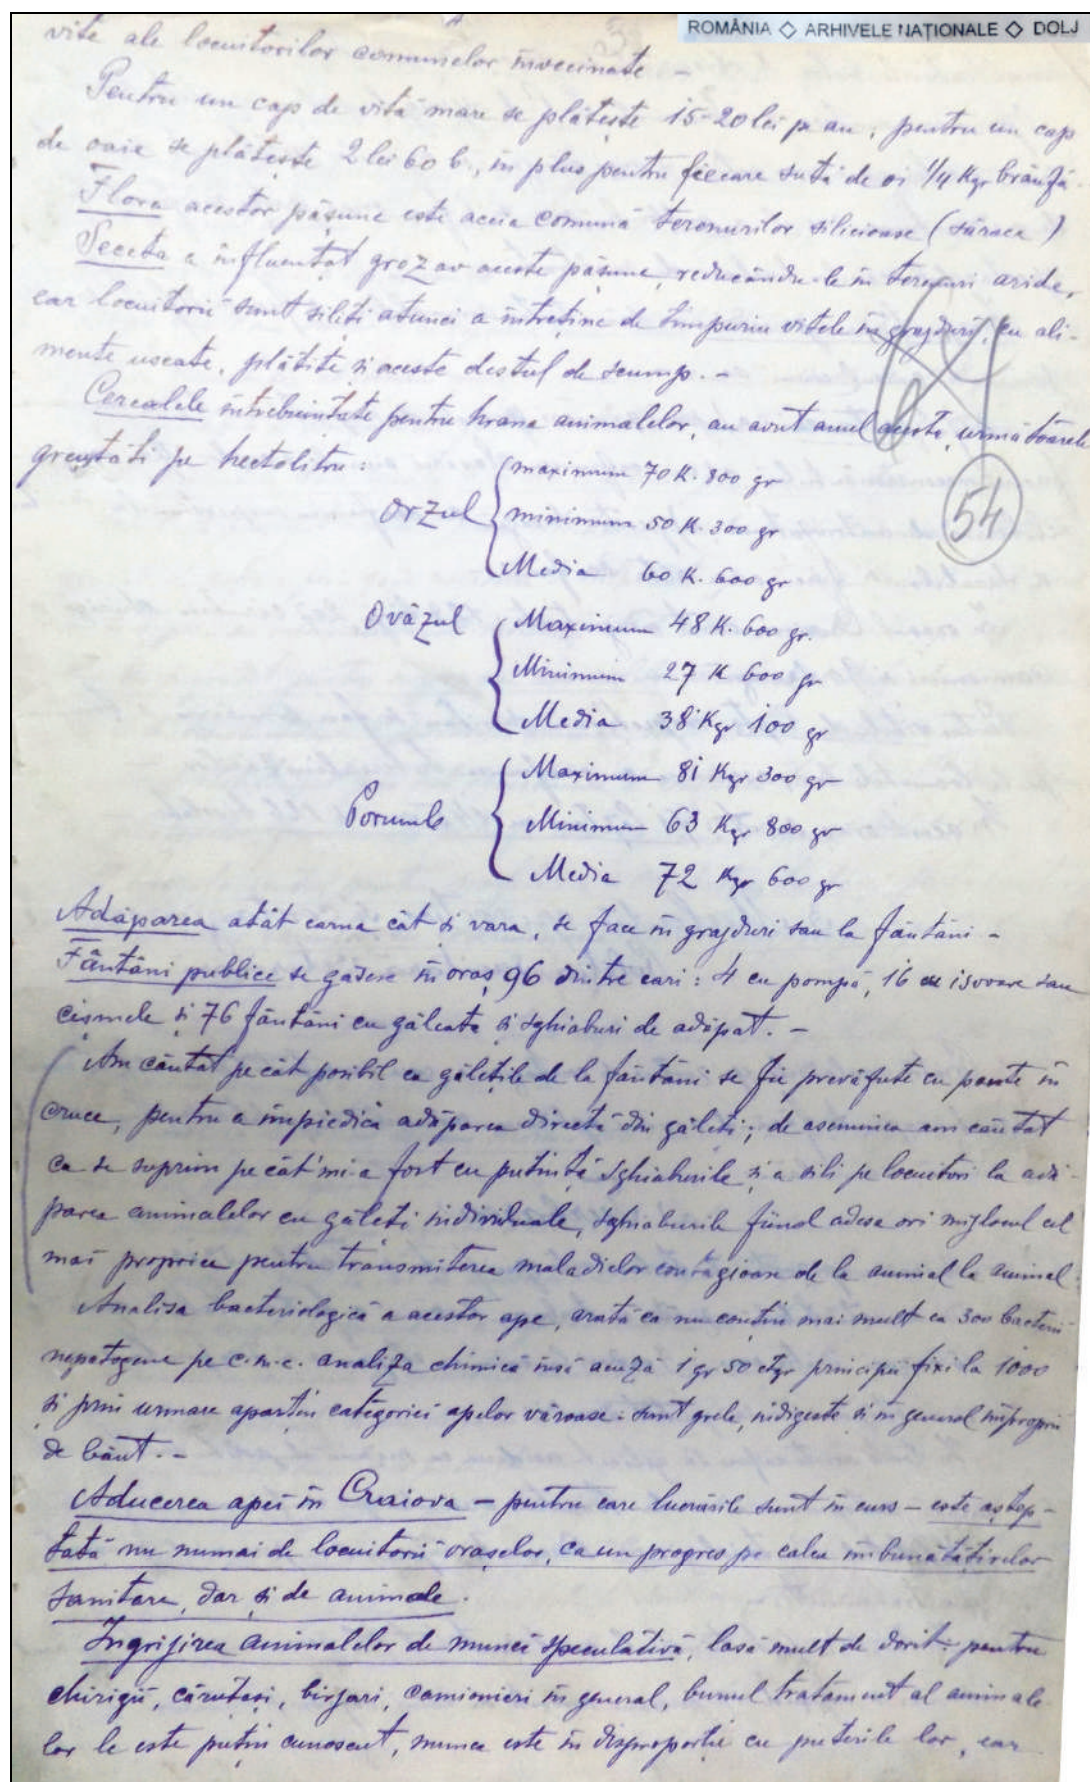 ROMÂNIA ◇ ARHIVELE NAȚIONALE ◇ DOLJ
vite ale locuitorilor comunelor învecinate –
Pentru un cap de vită mare se plătește 15-20 lei pe an; pentru un cap
de oaie se plătește 2 lei 60 b., în plus pentru fiecare sută de oi 1/4 Kgr brânză.
Flora acestor pășune este aceia comună terenurilor silicioase (săraca)
Seceta a influențat grozav aceste pășune, reducându-le în terenuri aride,
ear locuitorii sunt siliți atunci a întreține de timpuriu vitele în grajduri, cu ali-
mente uscate, plătite și aceste destul de scump. –
Cerealele întrebuințate pentru hrana animalelor, au avut anul acesta, următoarele
greutăți pe hectolitru:
Orzul { maximum 70 K. 800 gr
minimum 50 K. 300 gr
Media 60 K. 600 gr
54
Ovăzul { Maximum 48 K. 600 gr.
Minimum 27 K 600 gr
Media 38 Kgr 100 gr
Porumb { Maximum 81 Kgr 300 gr
Minimum 63 Kgr 800 gr
Media 72 Kgr 600 gr
Adăparea atât earna cât și vara, se face în grajduri sau la fântâni –
Fântâni publice se găsesc în oraș 96 dintre cari: 4 cu pompă, 16 cu isvoare sau
cișmele și 76 fântâni cu găleata și sghiaburi de adăpat. –
Am căutat pe cât posibil ca gălețile de la fântâni se fie prevăzute cu punte în
cruce, pentru a împiedică adăparea directă din găleți; de aseminea am căutat
ca se suprim pe cât 'mi-a fost cu putință sghiaburile și a sili pe locuitori la adă-
parea animalelor cu găleți individuale, sghiaburile fiind adese ori mijlocul cel
mai propriu pentru transmiterea maladielor contagioase de la animal la animal.
Analisa bacteriologică a acestor ape, arată că nu conțin mai mult ca 300 bacterii
nepatogene pe c.m.c. analiza chimică însă acuză 1 gr 50 ctgr principii fixi la 1000
și prin urmare aparțin categoriei apelor văroase: sunt grele, indigeste și în general improprii
de băut. –
Aducerea apei în Craiova – pentru care lucrările sunt în curs – este aștep-
tată nu numai de locuitorii orașelor, ca un progres pe calea îmbunătățirelor
sanitare, dar și de animale.
Îngrijirea animalelor de muncă speculativă, lasă mult de dorit: pentru
chirigii, căruțași, birjari, camionieri în general, bunul tratament al animale-
lor le este puțin cunoscut, munca este în disproporție cu puterile lor, ear